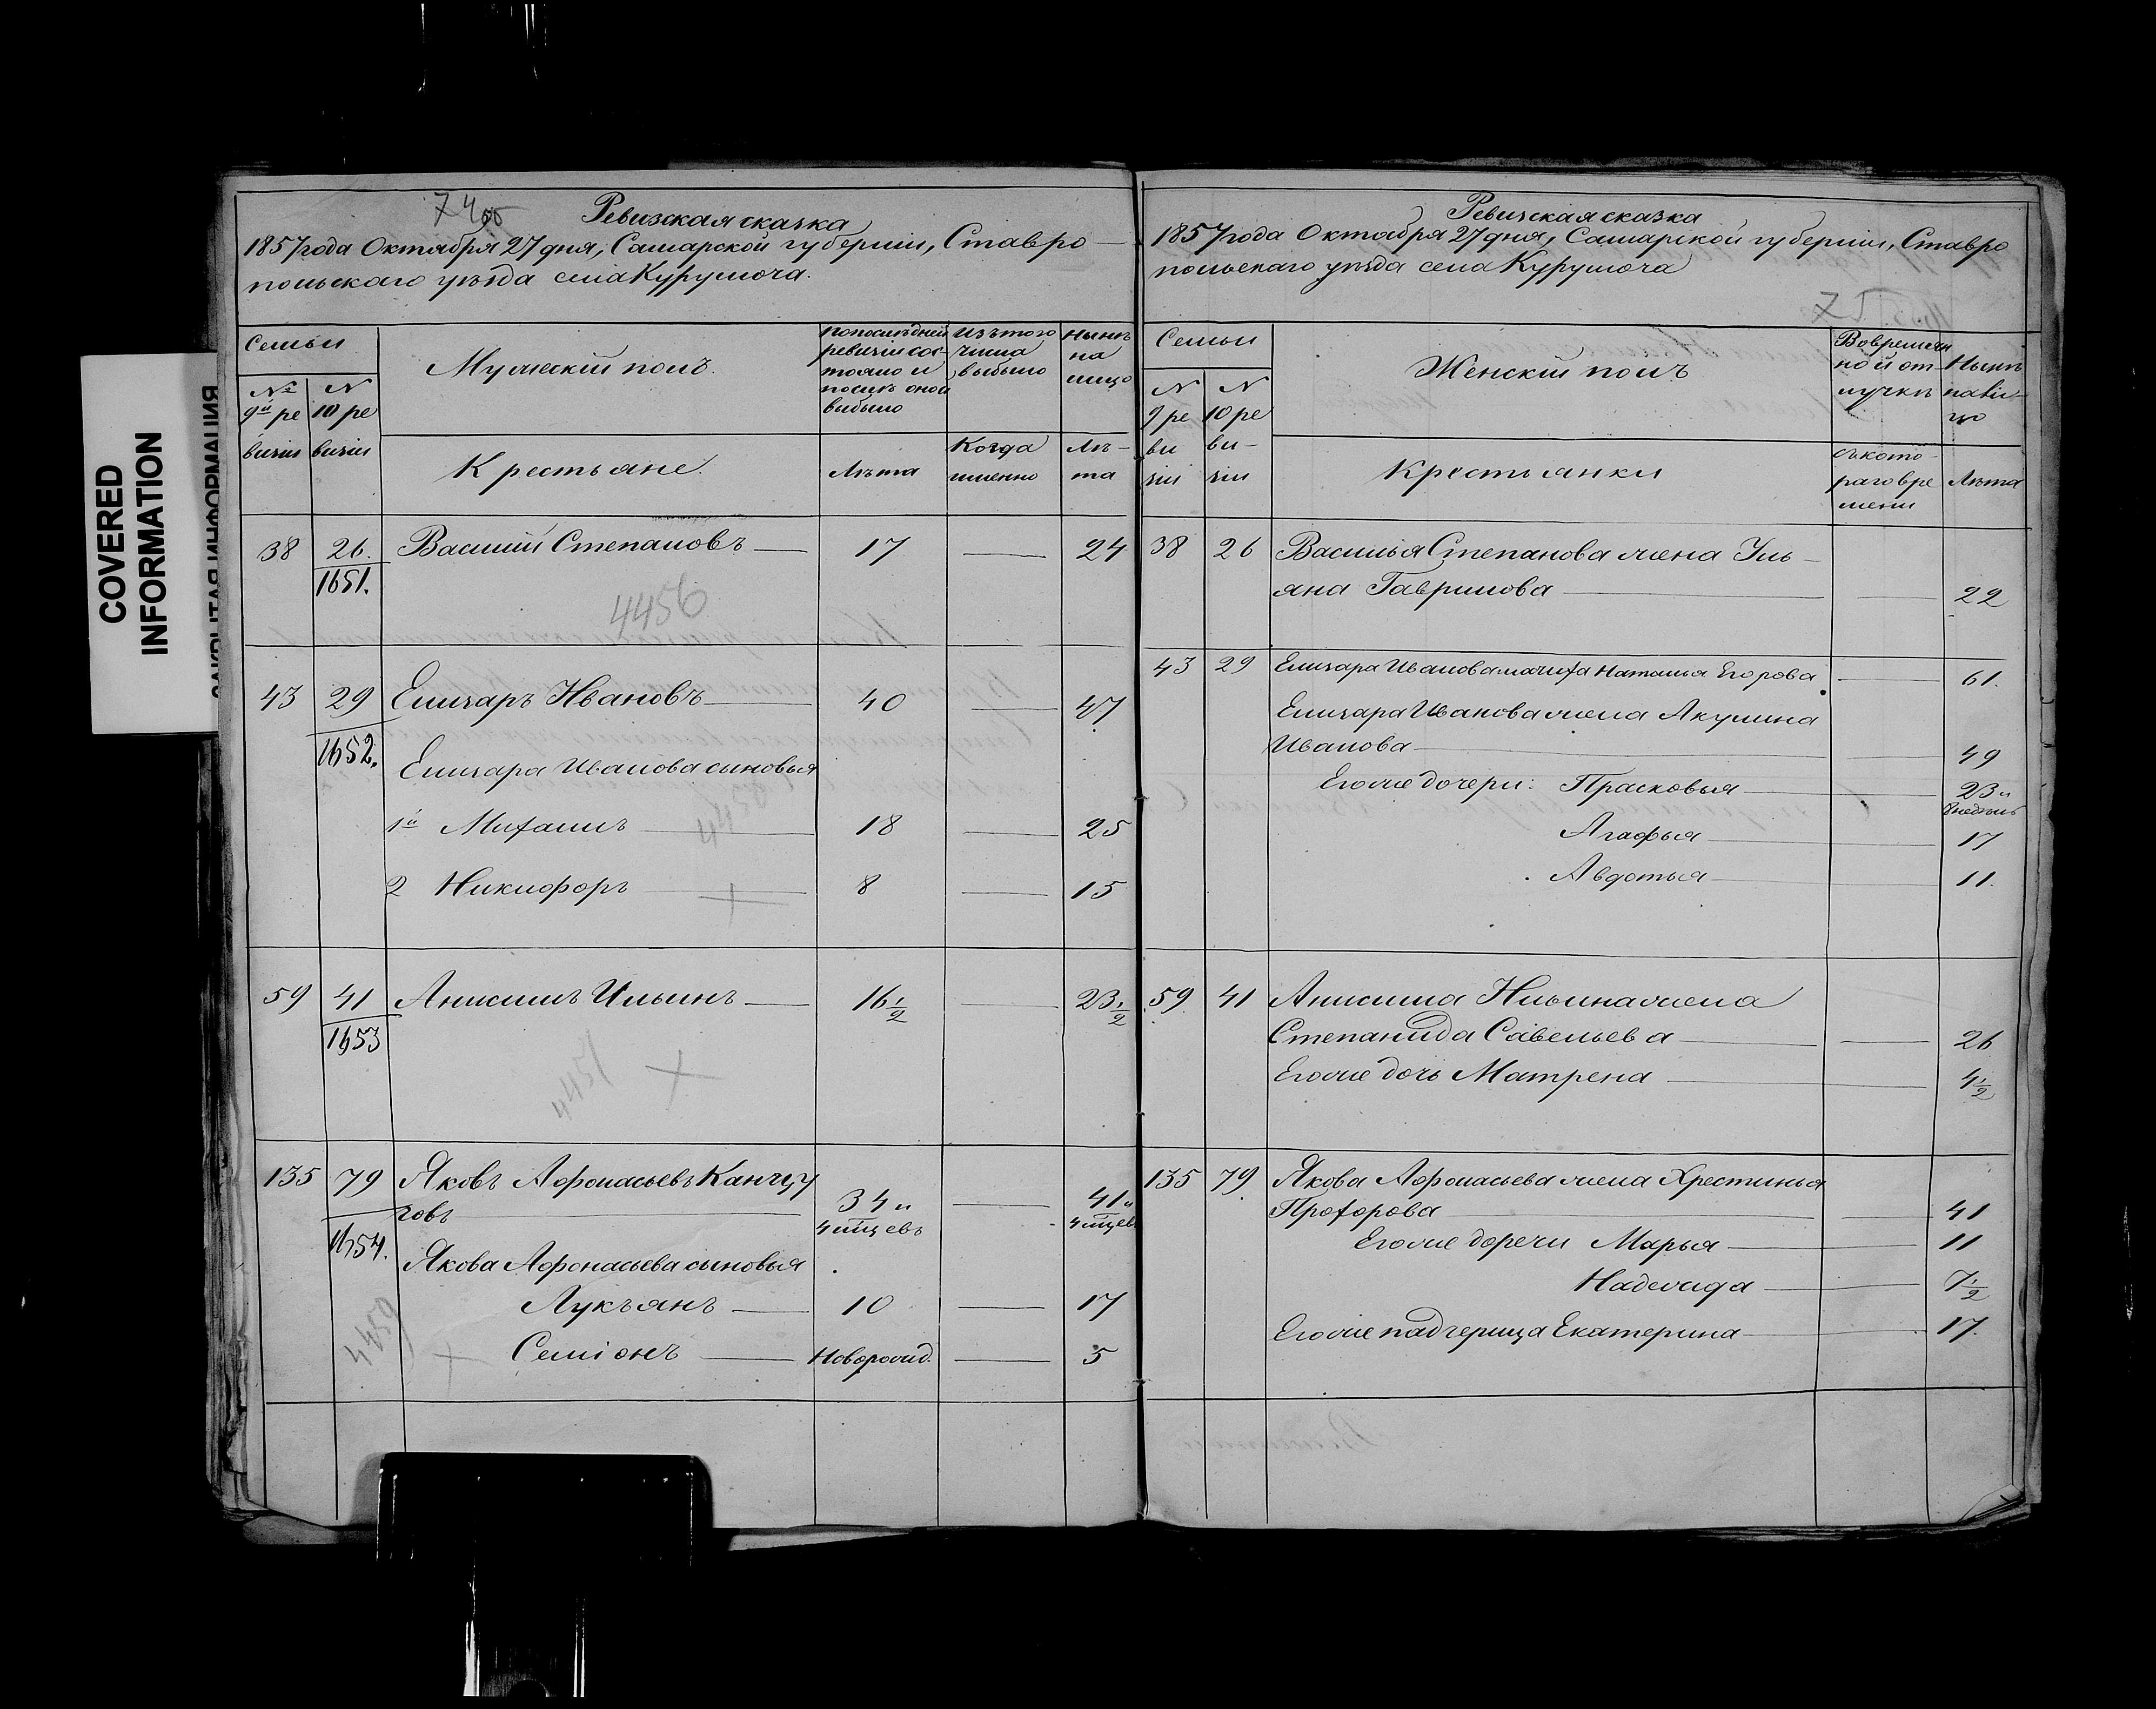 COVERED
INFORMATION
ЗАКРЫТАЯ ИНФОРМАЦИЯ
Ревизская сказка
1857 года Октября 27 дня, Самарской губерніи, Ставро
польскаго уѣзда села Курумоча.
Семьи
№ 9й ре
визіи
N 10 ре
визіи
Мужескій полъ.
Крестьяне.
По послѣдней
ревизіи сос-
тояло и
послѣ оной
выбыло
Лѣта
Изъ того
числа
выбыло
Когда
именно
Нынѣ
на
лицо
Лѣ-
та
38 26. Василій Степановъ 17 24
1651.
4456
43 29 Елизаръ Ивановъ 40 47
1652.
Елизара Иванова сыновья
1й Михаилъ 18 25
2 Никифоръ 8 15
59 41 Анисимъ Ильинъ 16 1/2 23 1/2
1653
135 79 Яковъ Афонасьевъ Канчу
ровъ 34 и 41 и
4 мцевъ 4 мцев
1654.
Якова Афонасьева сыновья
Лукъянъ 10 17
Семіонъ Новорожд. 5
4459
Ревизская сказка
1857 года Октября 27 дня, Самарской губерніи, Ставро
польскаго уѣзда села Курумоча
75
Семьи
N
9 ре
ви
зіи
N
10 ре
ви-
зіи
Женскій полъ
Крестьянки
Во времен
ной от-
лучкѣ
съ кото-
раго вре
мени
Нынѣ
на ли-
цо
Лѣта
38 26 Василья Степанова жена Уль-
яна Гаврилова 22
43 29 Елизара Иванова мачиха Наталья Егорова 61.
Елизара Иванова жена Акулина
Иванова 49
Его же дочери: Прасковья 23 и
8 недель
Агафья 17
Авдотья 11.
59 41 Анисима Ильина жена
Степанида Савельева 26
Его же дочь Матрена 4 1/2
135 79. Якова Афонасьева жена Хрестинья
Прохорова 41
Его же доречи Марья 11
Надежда 7 1/2
Его же падчерица Екатерина 17.